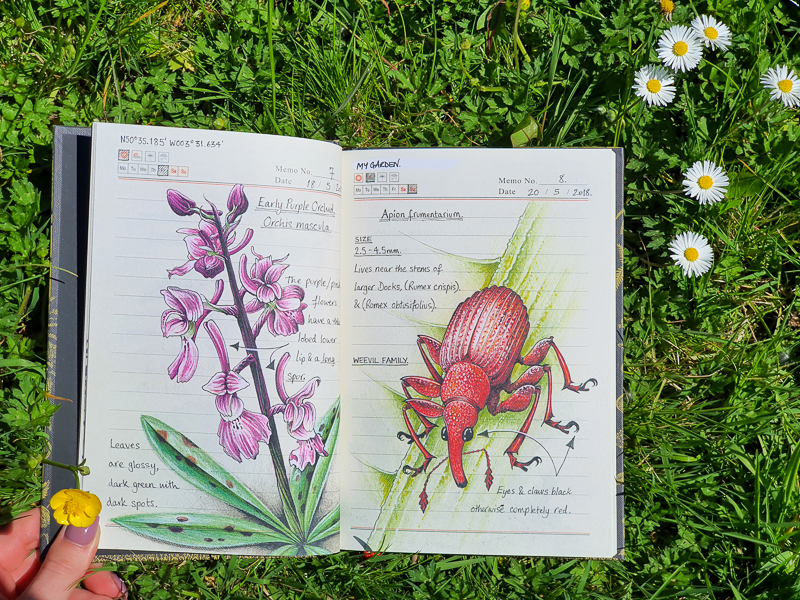 N50°35.185' W003°31.634'
Memo No. 7.
Mo Tu We Th Fr Sa Su
Date 18 / 5
Early Purple Orchid.
Orchis mascula.
the purple/pink
flowers
have a
lobed lower
lip & a long
spur.
Leaves
are glossy,
dark green with
dark spots.
MY GARDEN.
Memo No. 8.
Mo Tu We Th Fr Sa Su
Date 20 / 5 / 2018.
Apion frumentarium.
SIZE
2.5-4.5mm.
Lives near the stems of
larger Docks, (Rumex crispis).
& (Romex obtusifolius).
WEEVIL FAMILY.
Eyes & claws black
otherwise completely red.